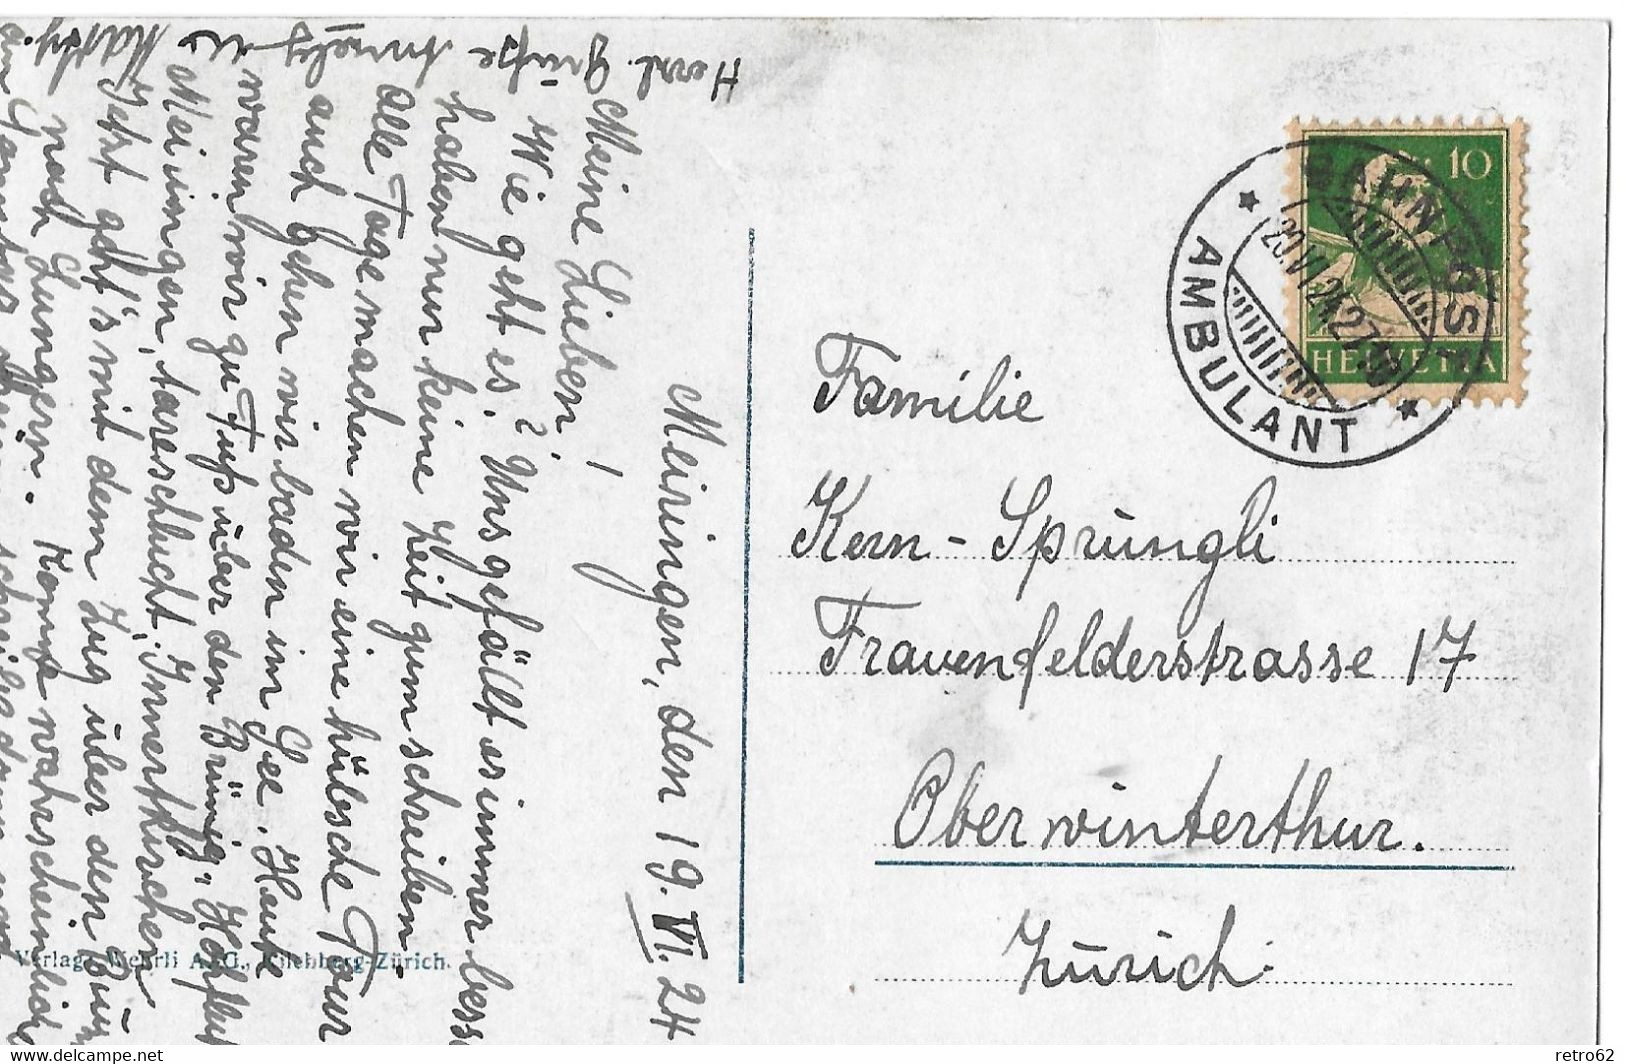 Meiringen, den 19. VI. 24
Meine Lieben!
Wie geht es? Uns gefällt es immer bess
haben nur keine Zeit zum schreiben.
Alle Tage machen wir eine hübsche Tour
auch gehen wir baden im See. Heute
waren wir zu Fuss über den Brünig, Hohfluh
Meiringen, Aareschlucht, Innertkirchen
Jetzt geht's mit dem Zug über den Brün
nach Lungern. Komme wahrscheinlich
am Samstag
Herzl. Grüsse
Familie
Kern-Sprüngli
Frauenfelderstrasse 17
Oberwinterthur.
Zürich.
10
HELVETIA
BAHNPOST
AMBULANT
Verlag Wehrli A.-G., Kilchberg-Zürich.
www.delcampe.net
retro62